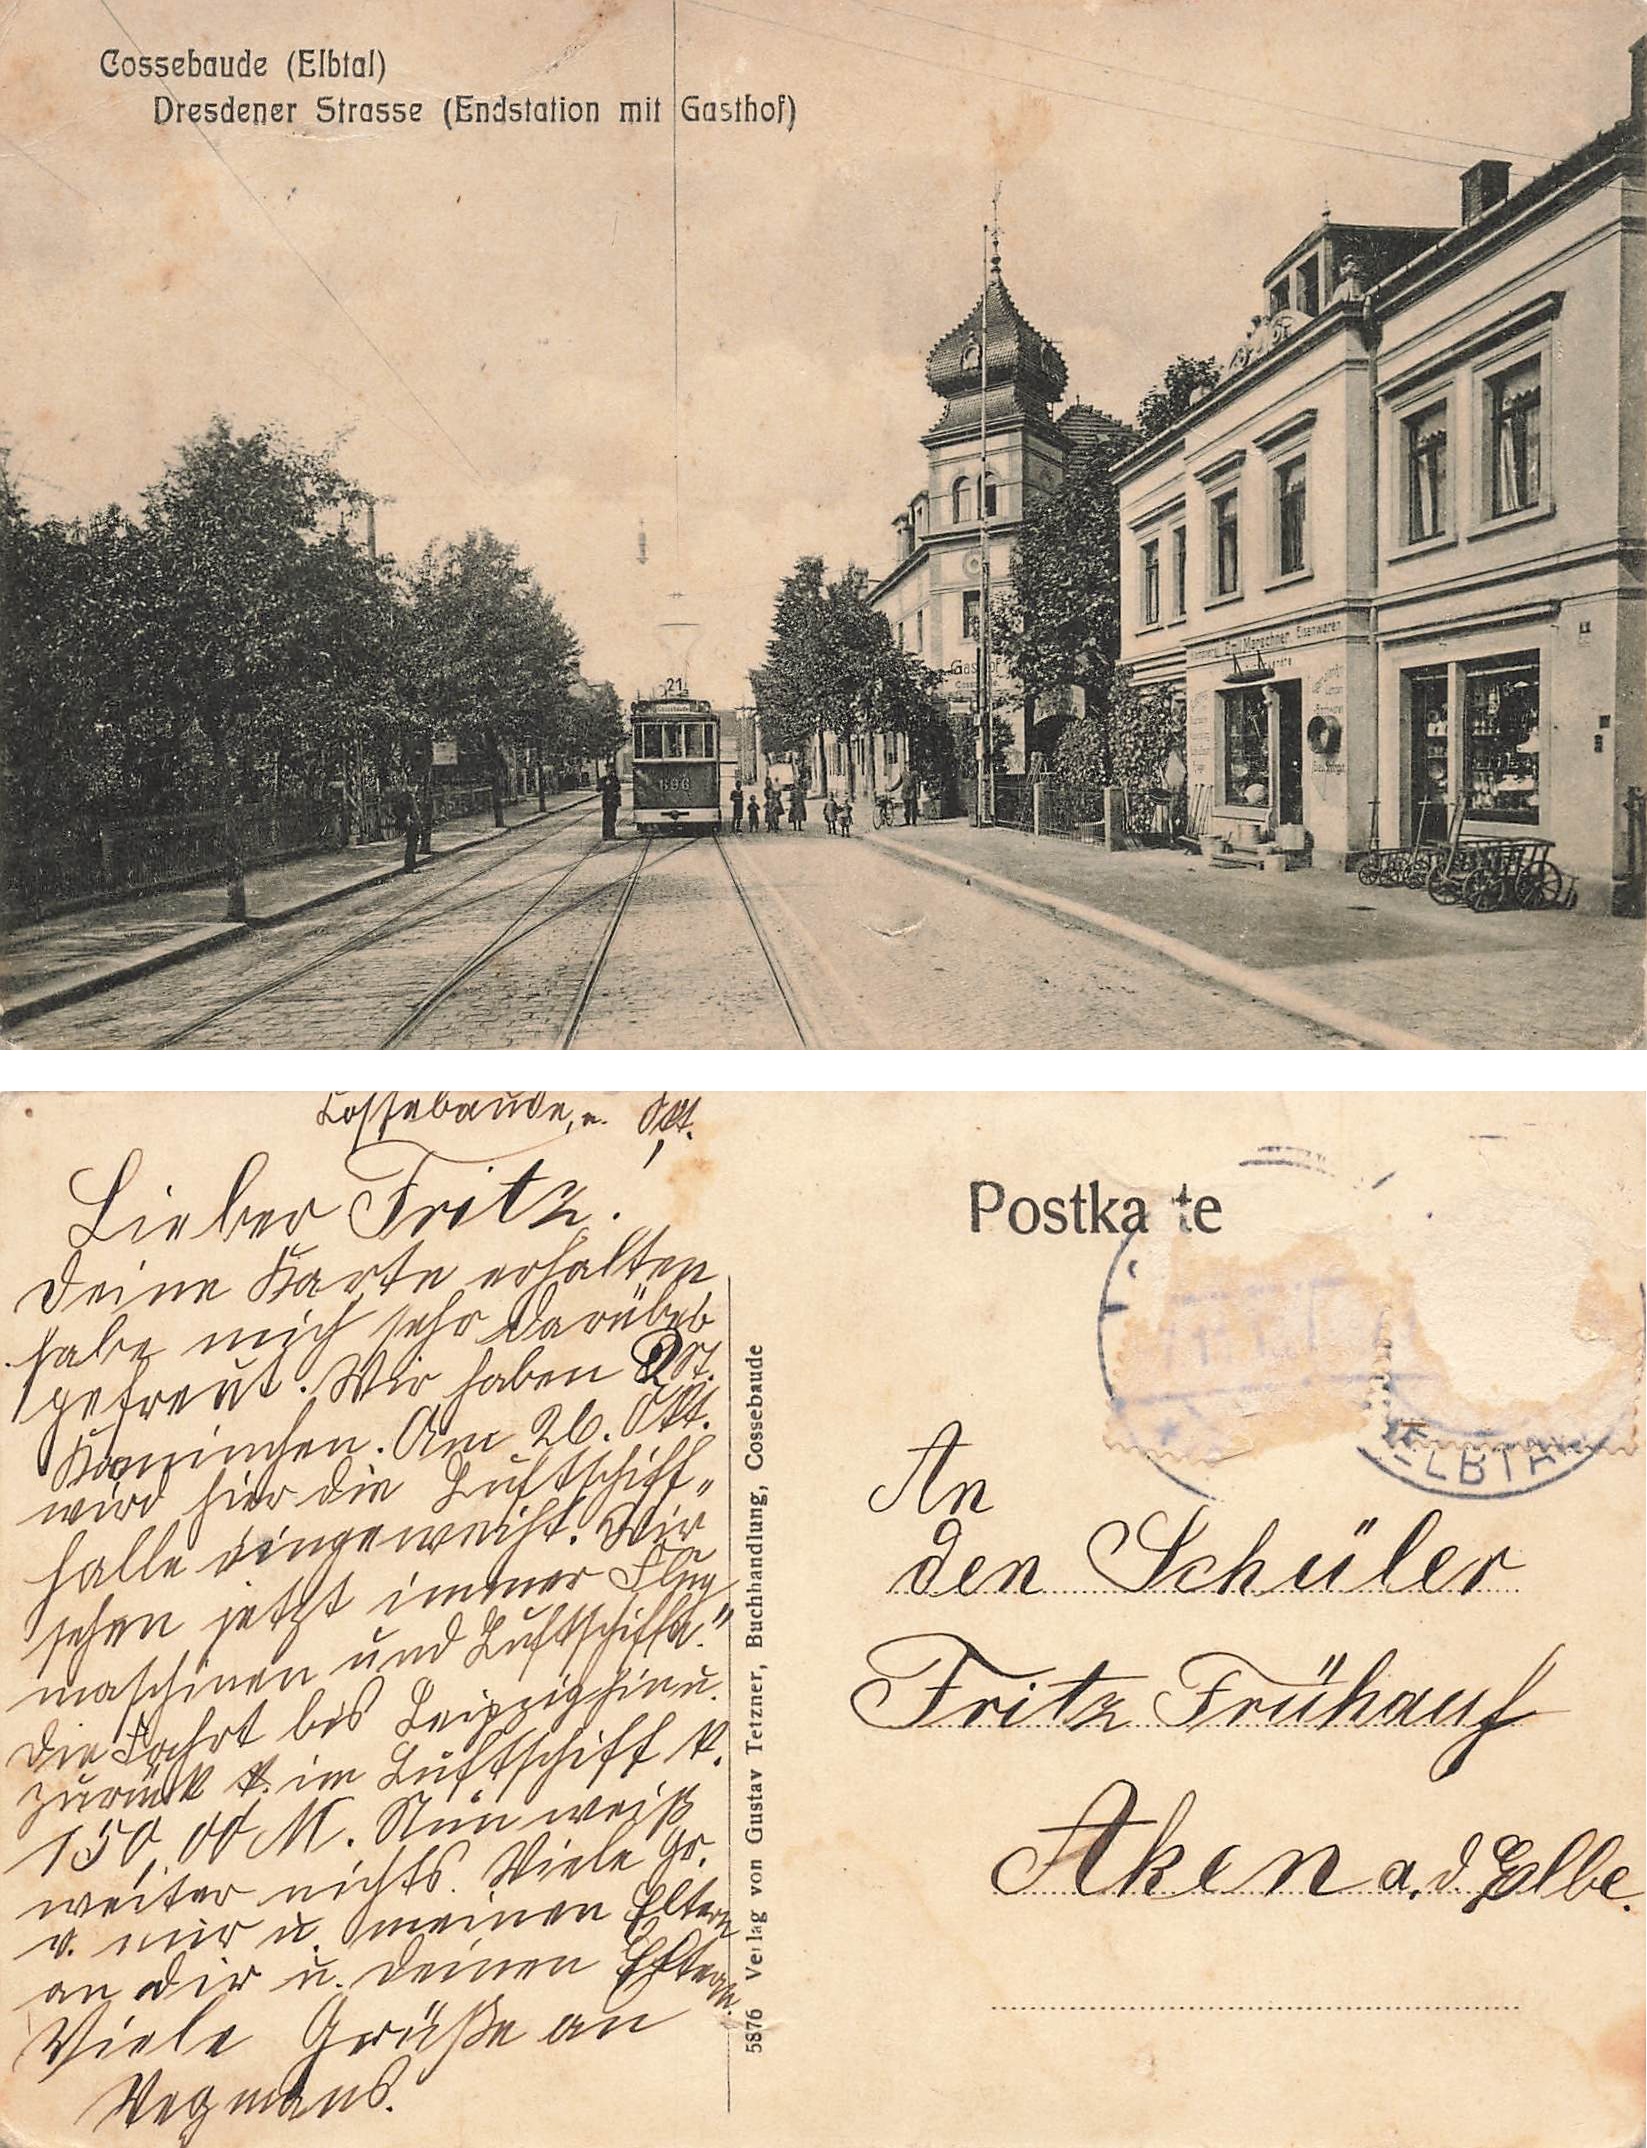 Cossebaude (Elbtal)
Dresdener Strasse (Endstation mit Gasthof)
21
696
Gasthof
Emil Margchner Eisenwaren
Cossebaude, Okt.
Lieber Fritz.
Deine Karte erhalten
habe mich sehr darüber
gefreut. Wir haben 2 St.
Kaninchen. Am 26. Okt.
wird hier die Luftschiff-
halle eingeweiht. Wir
sehen jetzt immer Flug
maschinen und Luftschiffe.
Die Fahrt bis Leipzig hin u.
zurück k. im Luftschiff k.
150,00 M. Nun weiß
weiter nichts. Viele Gr.
v. mir u. meinen Eltern
an dir u. deinen Eltern.
Viele Grüße an
Wegmans.
5876 Verlag von Gustav Tetzner, Buchhandlung, Cossebaude
Postka te
ELBTA
An
den Schüler
Fritz Frühauf
Aken a. d. Elbe.